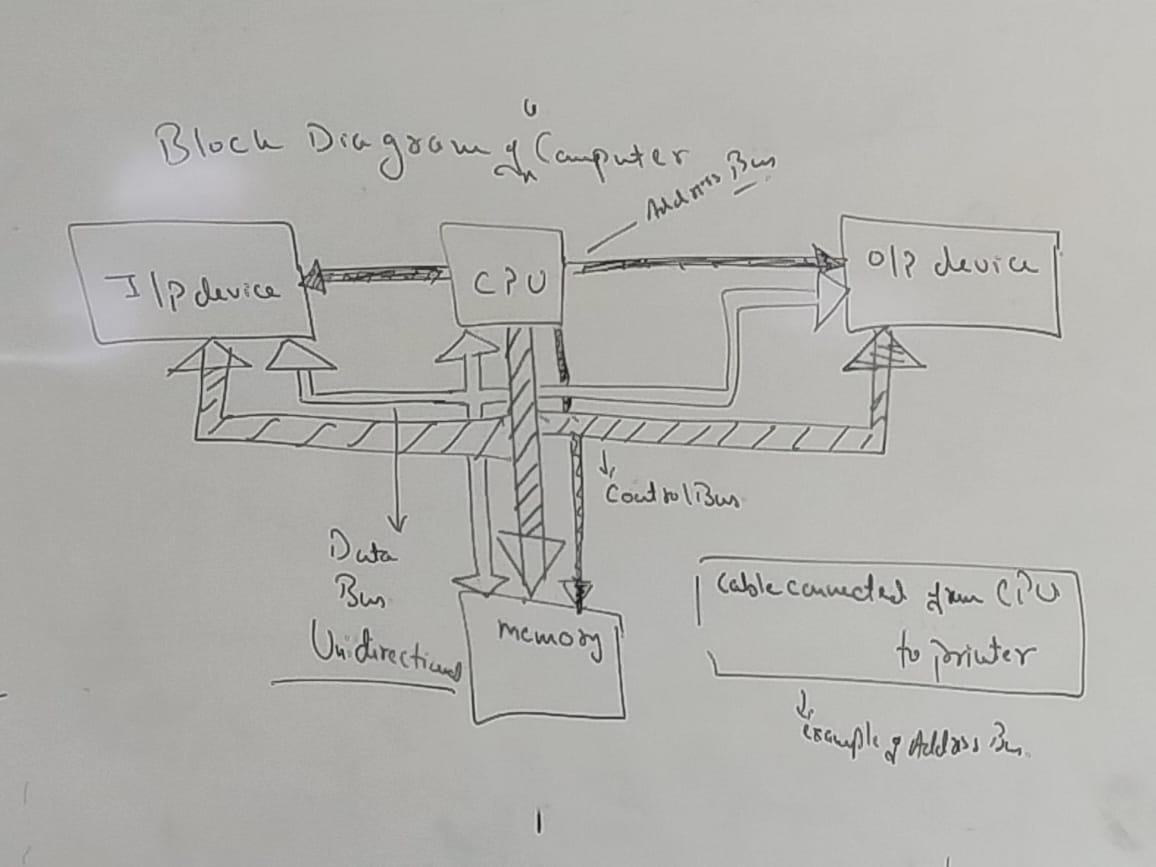 Block Diagram of Computer
Address Bus
I/P device
CPU
O/P device
Control Bus
Data
Bus
Unidirectional
memory
Cable connected from CPU
to printer
example of Address Bus